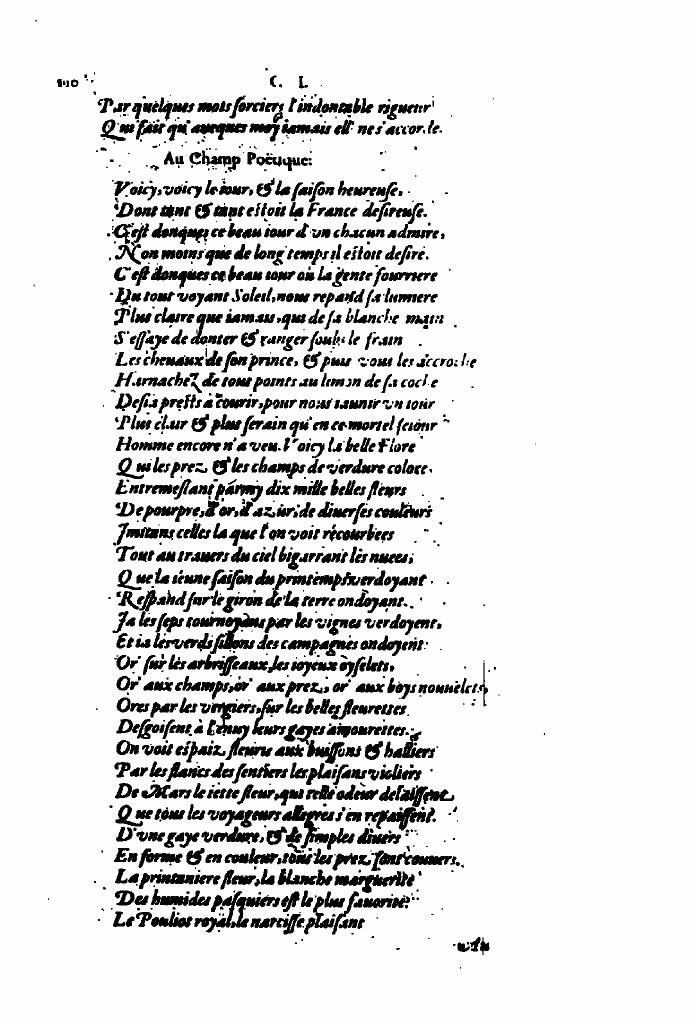 C. I.
Par quelques mots sorciers l'indontable rigueur
Qui fait qu'auecques moy iamais ell' ne s'accorde.
Au Champ Poëtique:
Voicy, voicy le iour, & la saison heureuse,
Dont tant & tant estoit la France desireuse.
C'est donques ce beau iour d'vn chacun admire,
Non moins que de long temps il estoit desire.
C'est donques ce beau iour où la gente fourriere
Du tout voyant Soleil, nous repand sa lumiere
Plus claire que iamais, qui de sa blanche main
S'essaye de donter & ranger soubs le frain
Les cheuaux de son prince, & puis vous les accroche
Harnachez de tous points au timon de sa coche
Desia prests à courir, pour nous iaunir vn iour
Plus clair & plus serain qu'en ce mortel seiour
Homme encore n'a veu. Voicy la belle Flore
Qui les prez, & les champs de verdure colore,
Entremeslant parmy dix mille belles fleurs
De pourpre, d'or, d'azur, de diuerses couleurs
Imitans celles la que l'on voit recourbees
Tout au trauers du ciel bigarrant les nuees,
Que la ieune saison du printemps verdoyant
Respand sur le giron de la terre ondoyant.
Ja les seps tournoyans par les vignes verdoyent,
Et ia les verds sillons des campagnes ondoyent
Or' sur les arbrisseaux, les ioyeux oyselets,
Or' aux champs, or' aux prez, or' aux boys nouuelets,
Ores par les vergiers, sur les belles fleurettes
Desgoisent à l'enuy leurs gayes amourettes.
On voit espaiz, fleuris aux buissons & halliers
Par les flancs des sentiers les plaisans violiers
De Mars le iette fleur, qui telle odeur delaissent,
Que tous les voyageurs allegres s'en repaissent.
D'vne gaye verdure, & de simples diuers
En forme & en couleur, tous les prez sont couuers,
La printaniere fleur, la blanche marguerite
Des humides pasquiers est le plus fauorite:
Le Pouliot royal, le narcisse plaisant